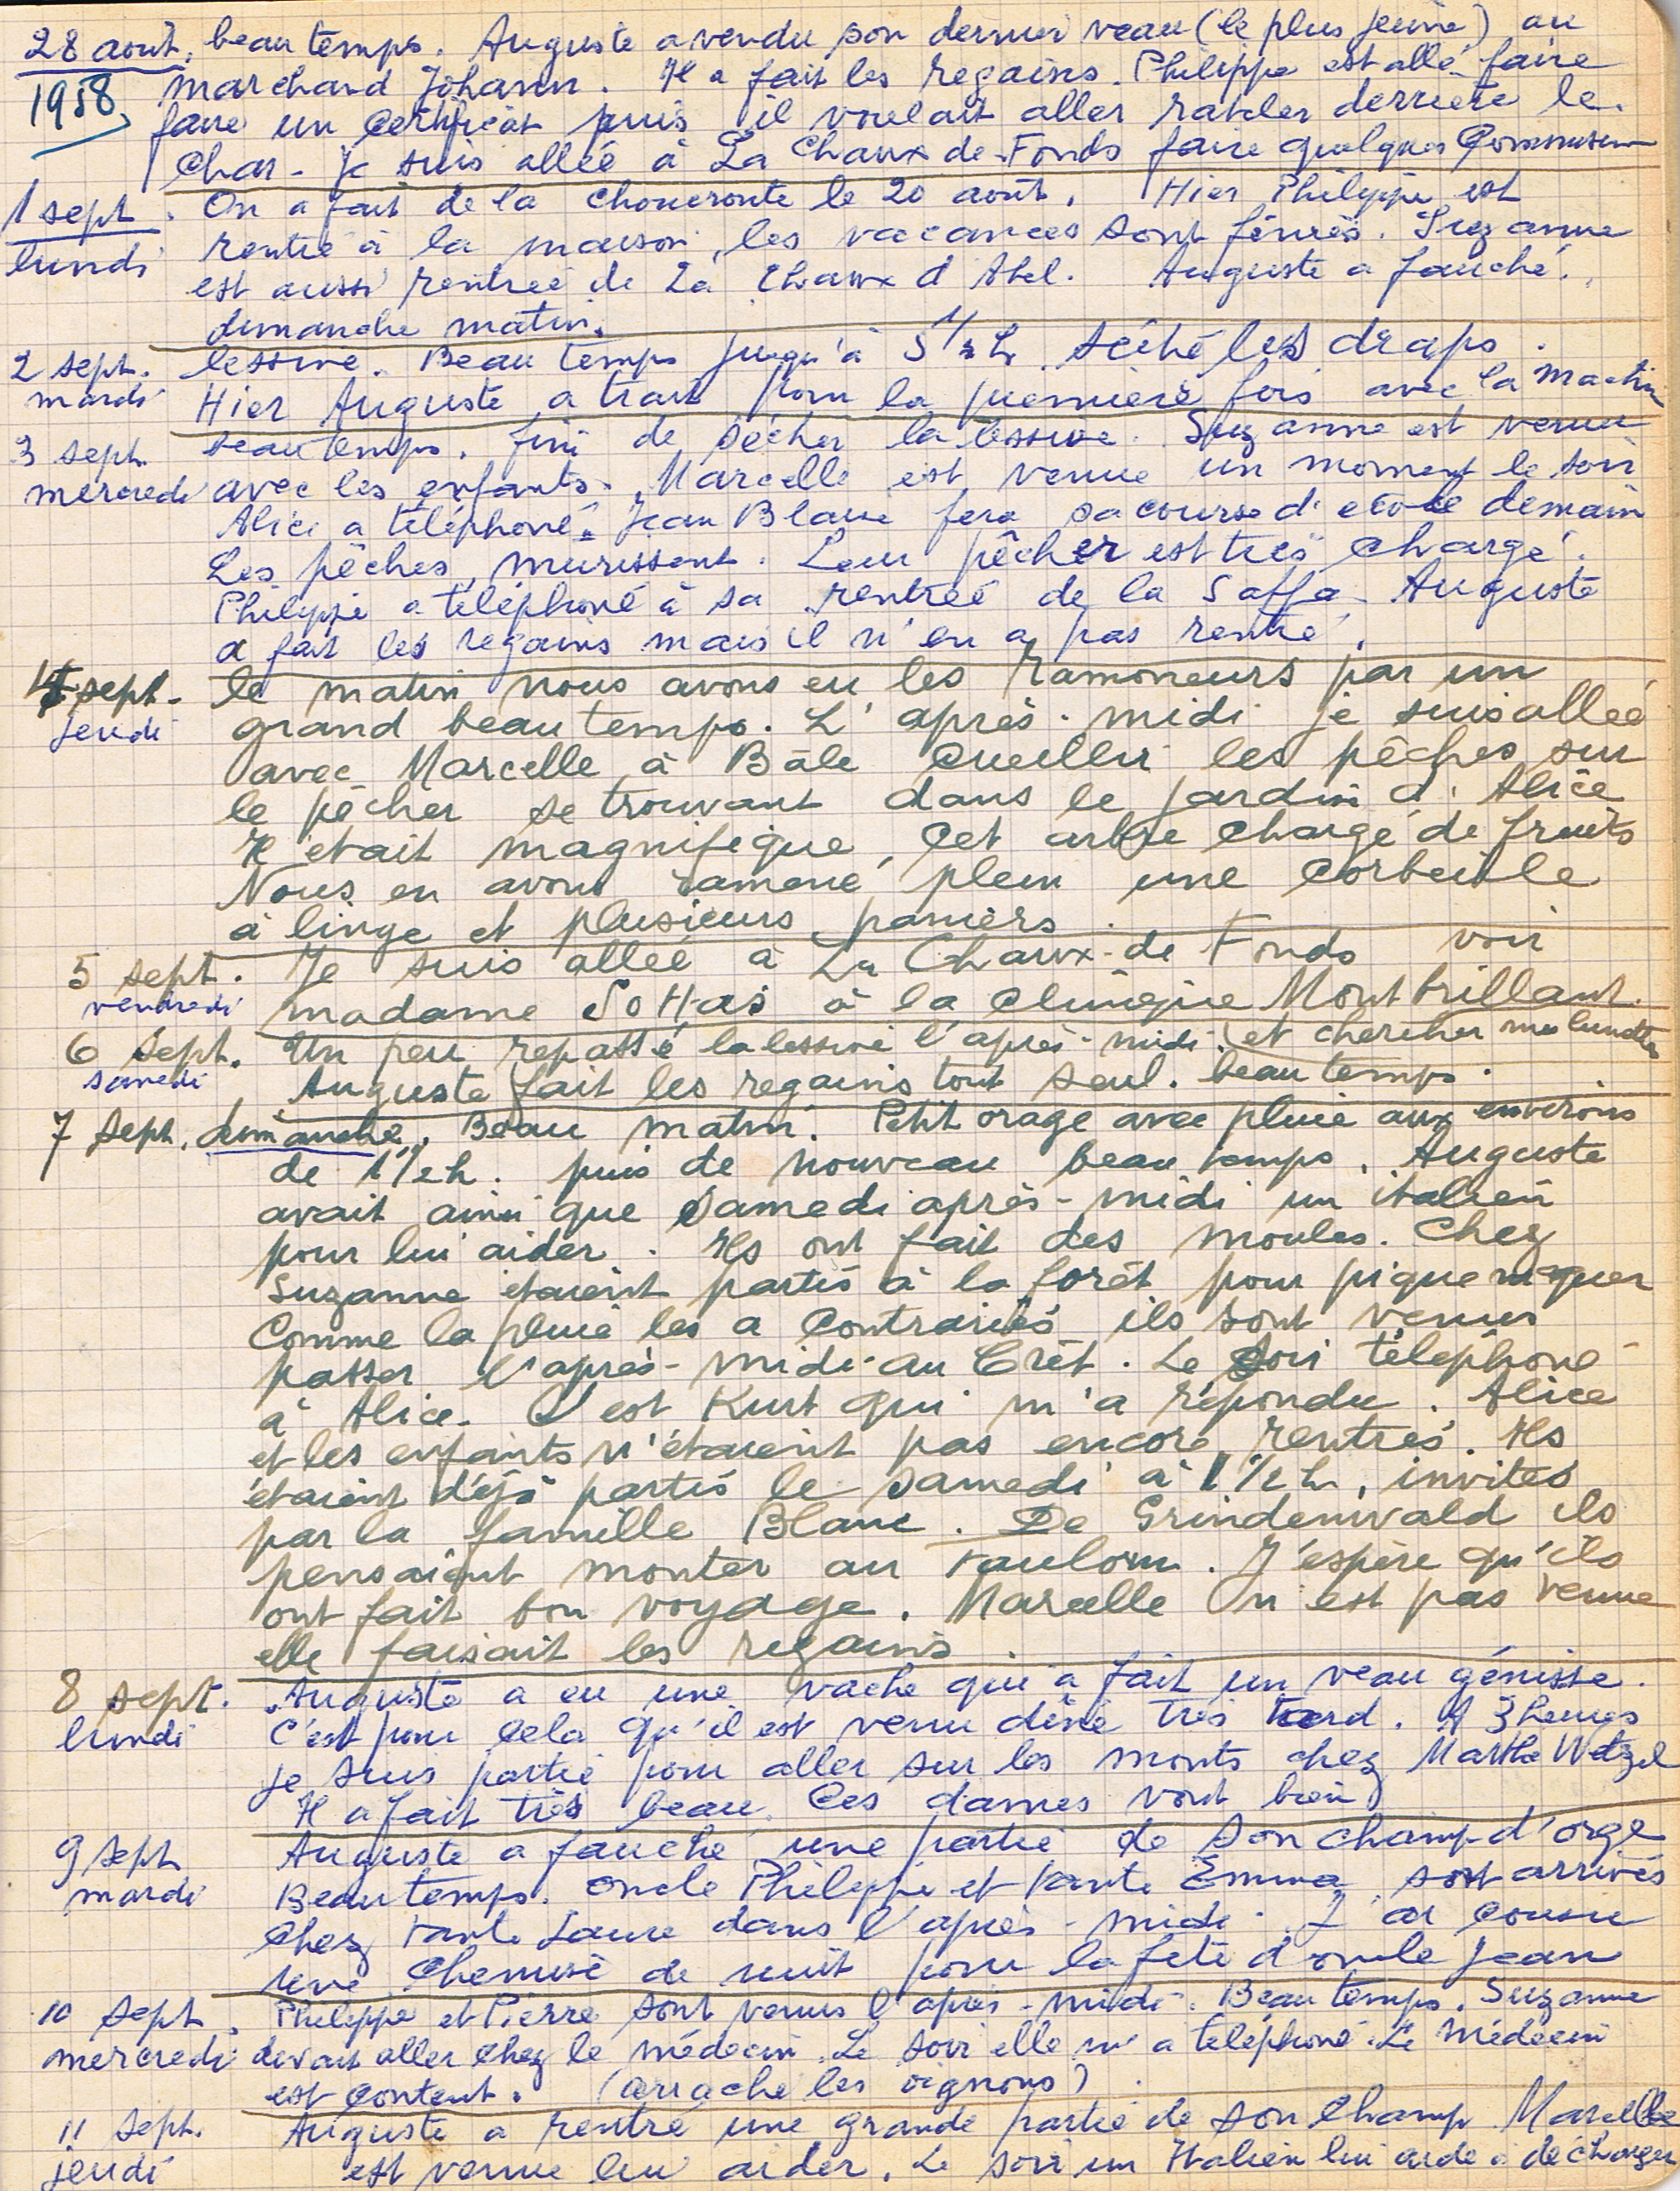 28 août, beau temps. Auguste a vendu son dernier veau (le plus jeune) au
1958. marchand Johann. Il a fait les regains. Philippe est allé faire
faire un certificat puis il voulait aller rateler derrière le
char - Je suis allée à La Chaux-de-Fonds faire quelques
1 sept. On a fait de la choucroute le 20 août. Hier Philippe est
lundi rentré à la maison, les vacances sont finies. Suzanne
est aussi rentrée de La Chaux d'Abel. Auguste a fauché
dimanche matin.
2 sept. lessive. Beau temps jusqu'à 5 1/2 h. séché les draps.
mardi Hier Auguste a trait pour la première fois avec la machin
3 sept. beau temps. fini de sécher la lessive. Suzanne est venue
mercredi avec les enfants. Marcelle est venue un moment le soir
Alice a téléphoné. Jean Blaise fera sa course d'école demain
Les pêches murissent. Leur pêcher est très chargé.
Philippe a téléphoné à sa rentrée de la Saffa. Auguste
a fait les regains mais il n'en a pas rentré.
4 sept. le matin nous avons eu les ramoneurs par un
jeudi grand beau temps. L'après-midi je suis allée
avec Marcelle à Bâle cueillir les pêches sur
le pêcher se trouvant dans le jardin d'Alice
Il était magnifique, cet arbre chargé de fruits
Nous en avons ramené plein une corbeille
à linge et plusieurs paniers.
5 sept. Je suis allée à La Chaux-de Fonds voir
vendredi madame Sottas à la clinique Montbrillant.
6 sept. Un peu repassé la lessive l'après-midi. et chercher mes lunettes
samedi Auguste fait les regains tout seul. beau temps.
7 sept. dimanche. Beau matin. Petit orage avec pluie aux environs
de 1 1/2 h. puis de nouveau beau temps. Auguste
avait ainsi que samedi après-midi un italien
pour lui aider. Ils ont fait des moules. Chez
Suzanne étaient partis à la forêt pour piqueniquer
Comme la pluie les a contrariés ils sont venus
passer l'après-midi au Crêt. Le soir téléphoné
à Alice. C'est Kurt qui m'a répondu. Alice
et les enfants n'étaient pas encore rentrés. Ils
étaient déjà partis le samedi à 1 1/2 h, invités
par la famille Blanc. De Grindenwald ils
pensaient monter au Faulorn. J'espère qu'ils
ont fait bon voyage. Marcelle n'est pas venue
elle faisait les regains
8 sept. Auguste a eu une vache qui a fait un veau génisse.
lundi C'est pour cela qu'il est venu dîné très tard. A 3 heures
je suis partie pour aller sur les monts chez Marthe Wetzel
Il a fait très beau. Ces dames vont bien
9 sept Auguste a fauché une partie de son champ d'orge
mardi Beau temps. oncle Philippe et tante Emma sont arrivés
chez tante Laure dans l'après-midi. J'ai cousu
une chemise de nuit pour la fête d'oncle Jean
10 sept. Philippe et Pierre sont venus l'après-midi. Beau temps. Suzanne
mercredi devait aller chez le médecin. Le soir elle m'a téléphoné. Le médecin
est content. (arraché les oignons)
11 sept. Auguste a rentré une grande partie de son champ Marcelle
jeudi est venue lui aider. Le soir un Italien lui aide à décharger